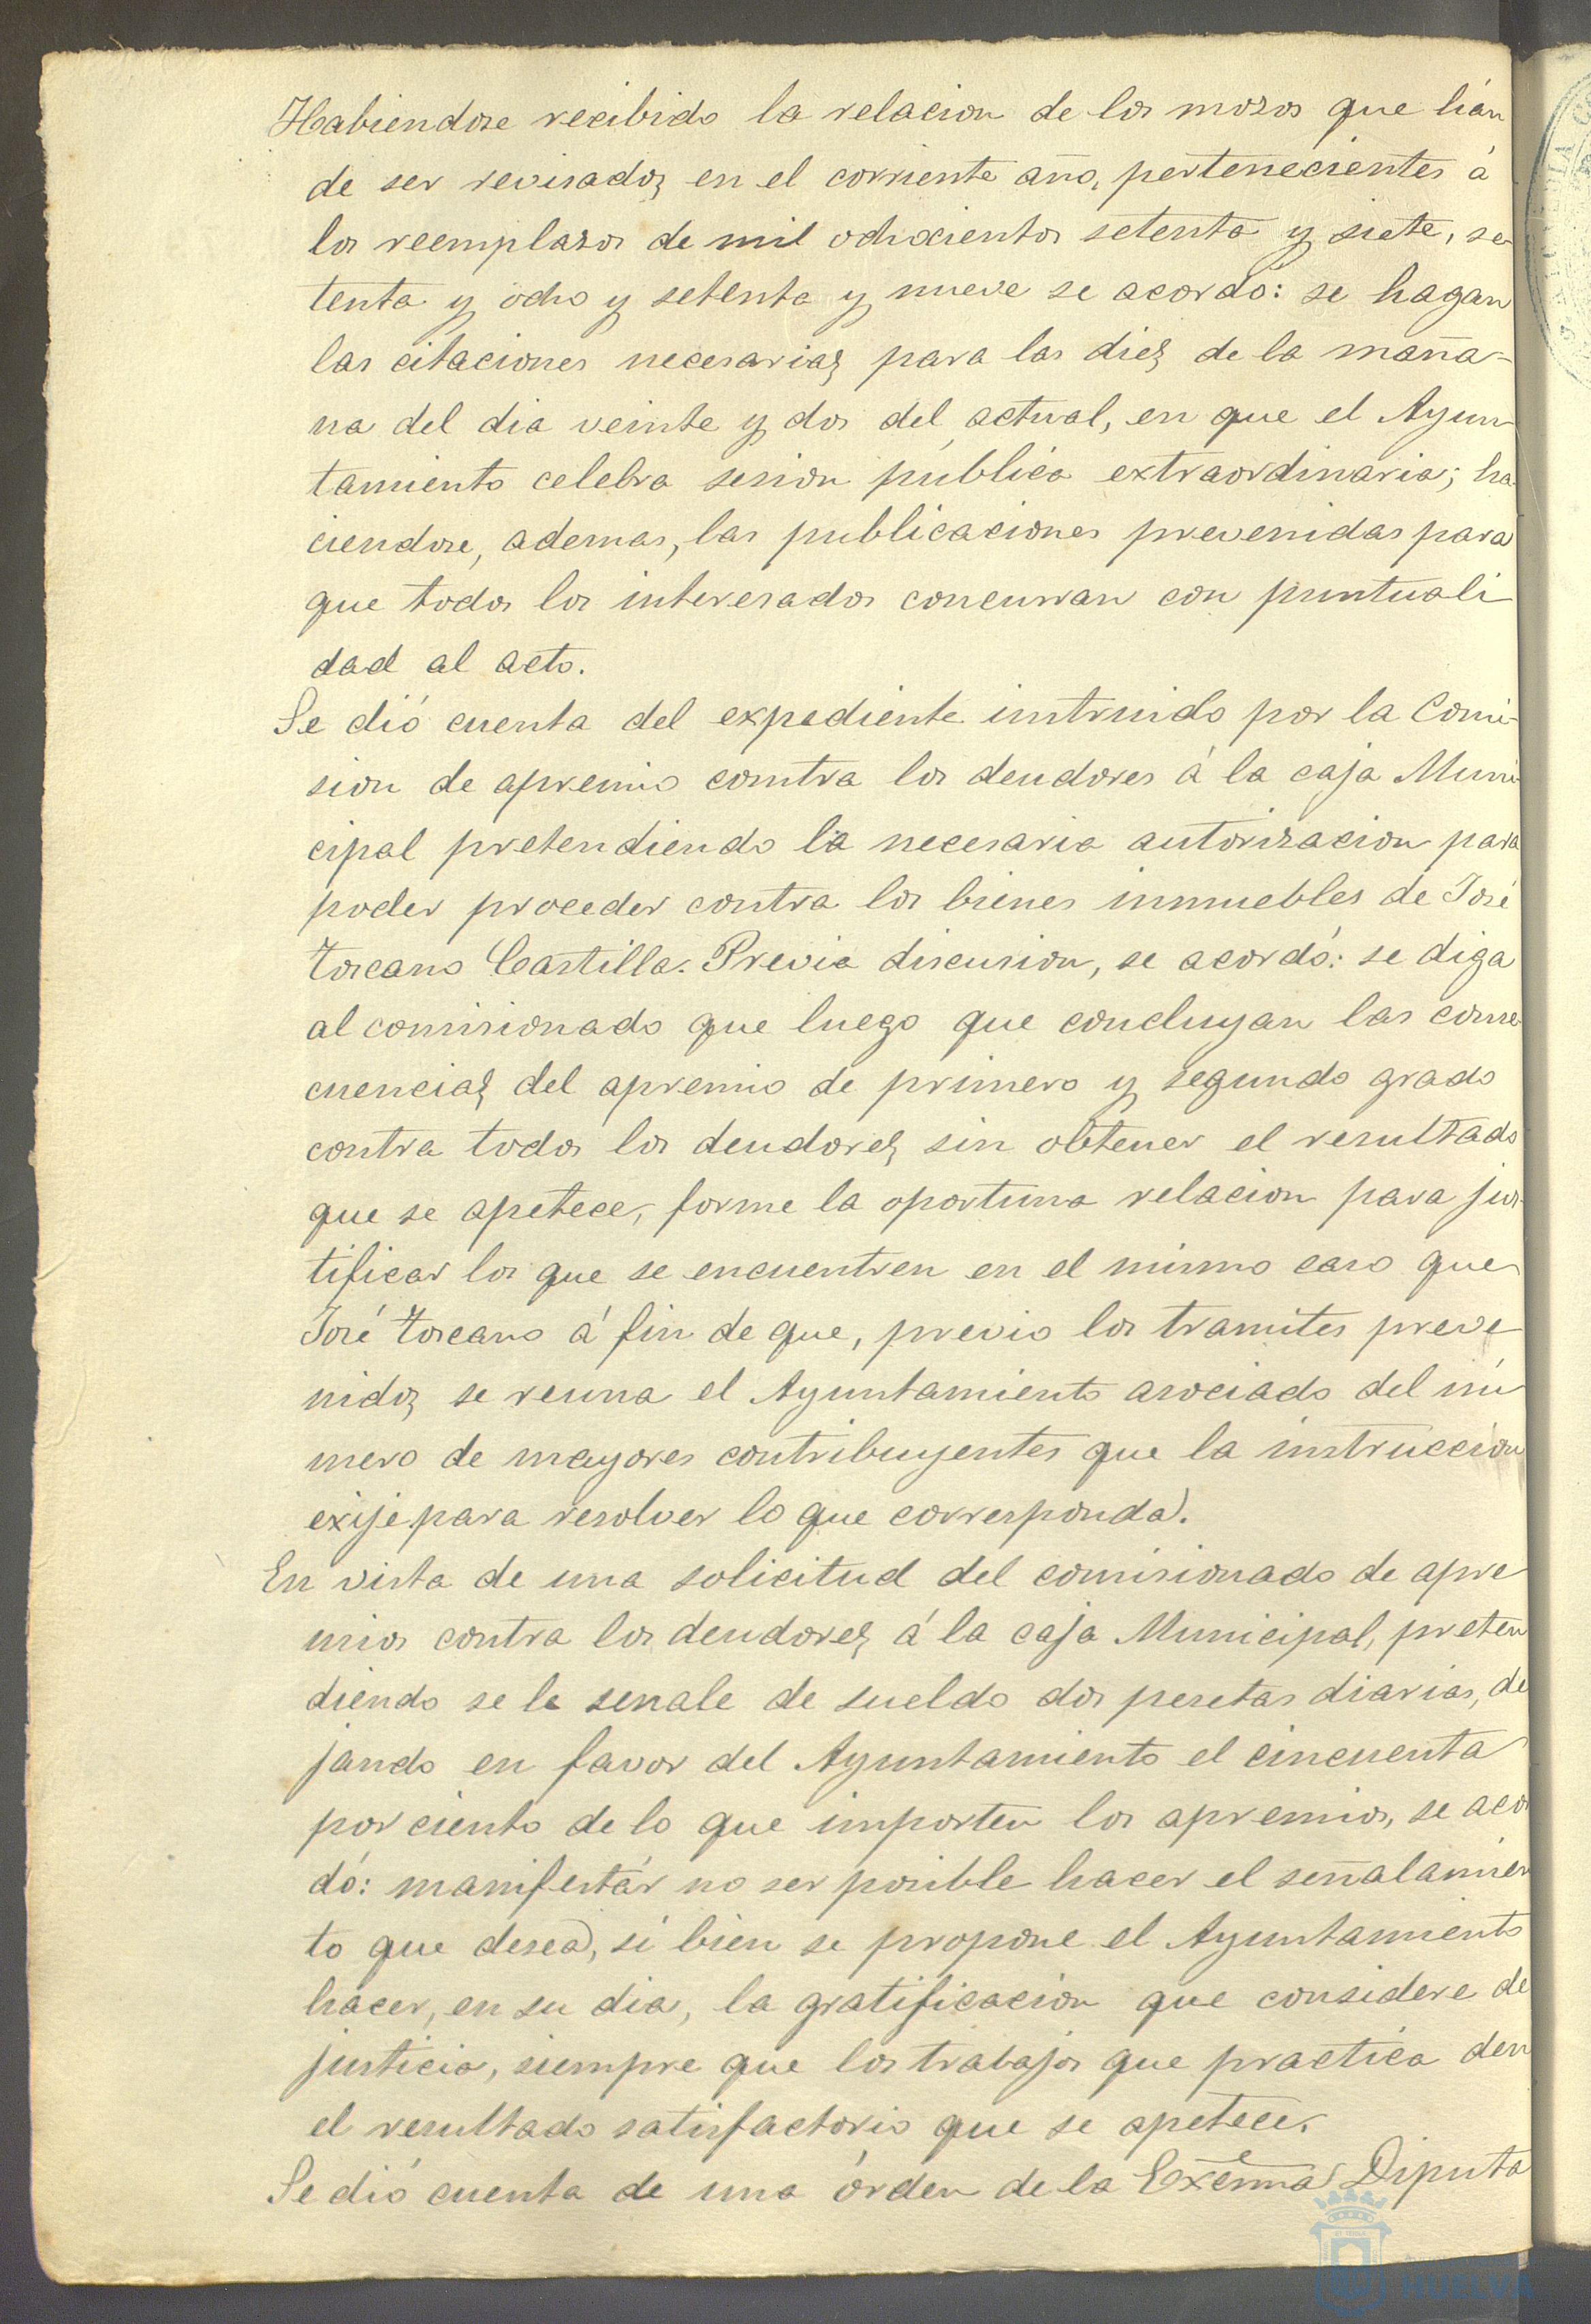 Habiendose recibido la relacion de los mozos que hán
de ser revisados en el corriente año, pertenecientes á
los reemplazos de mil ochocientos setenta y siete, se-
tenta y ocho y setenta y nueve se acordó: se hagan
las citaciones necesarias para las diez de la maña-
na del dia veinte y dos del actual, en que el Ayun
tamiento celebra sesion pública extraordinaria; ha
ciendose, ademas, las publicaciones prevenidas para
que todos los interesados concurran con puntuali
dad al acto.
Se dió cuenta del expediente instruido por la Comi-
sion de apremio contra los deudores á la caja Muni-
cipal pretendiendo la necesaria autorizacion para
poder proceder contra los bienes inmuebles de José
Toscano Castilla. Previa discusion, se acordó: se diga
al comisionado que luego que concluyan las conse-
cuencias del apremio de primero y segundo grado
contra todos los deudores sin obtener el resultado
que se apetece, forme la oportuna relacion para jus-
tificar los que se encuentren en el mismo caso que
José Toscano á fin de que, previo los tramites preve
nidos se reuna el Ayuntamiento asociado del nú
mero de mayores contribuyentes que la instruccion
exije para resolver lo que corresponda.
En vista de una solicitud del comisionado de apre
mios contra los deudores á la caja Municipal, preten
diendo se le senale de sueldo dos pesetas diarias, de
jando en favor del Ayuntamiento el cincuenta
por ciento de lo que importen los apremios, se acor
dó: manifestár no ser posible hacer el señalamien
to que desea, si bien se propone el Ayuntamiento
hacer, en su dia, la gratificacion que considere de
justicia, siempre que los trabajos que practica den
el resultado satisfactorio que se apetece.
Se dió cuenta de una órden de la Excma Diputa
HUELVA